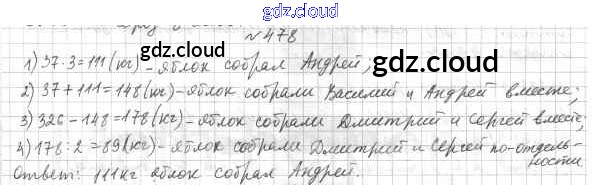 gdz.cloud
№ 478
1) 37·3=111(кг)-яблок собрал Андрей;
gdz.cloud gdz.cloud
2) 37+111=148(кг)-яблок собрали Василий и Андрей вместе;
3) 326-148=178(кг)-яблок собрали Дмитрий и Сергей вместе;
4) 178:2=89(кг)-яблок собрали Дмитрий и Сергей по-отдель-
ности
Ответ: 111кг яблок собрал Андрей.
gdz.cloud gdz.cloud